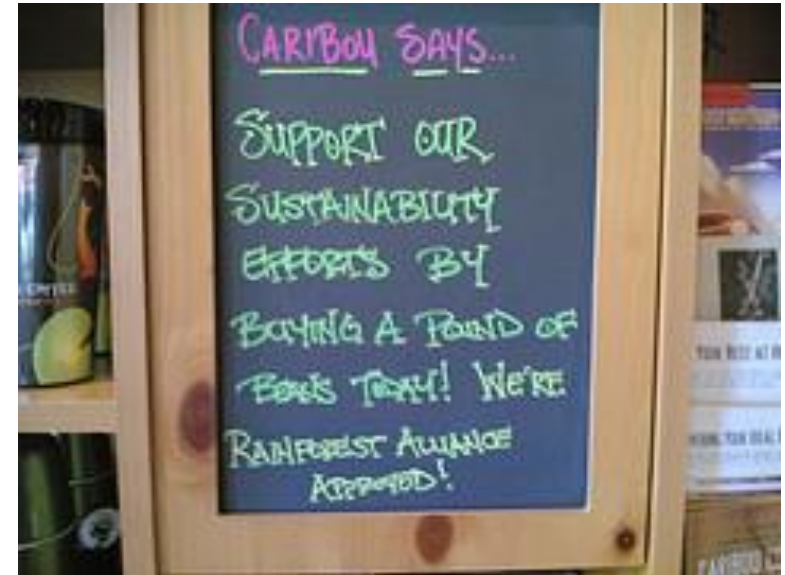 CARIBOU SAYS...
SUPPORT OUR
SUSTAINABILITY
EFFORTS BY
BUYING A POUND OF
BEANS TODAY! WE'RE
RAINFOREST ALLIANCE
APPROVED!
YOUR BEST AT
CARIBOU